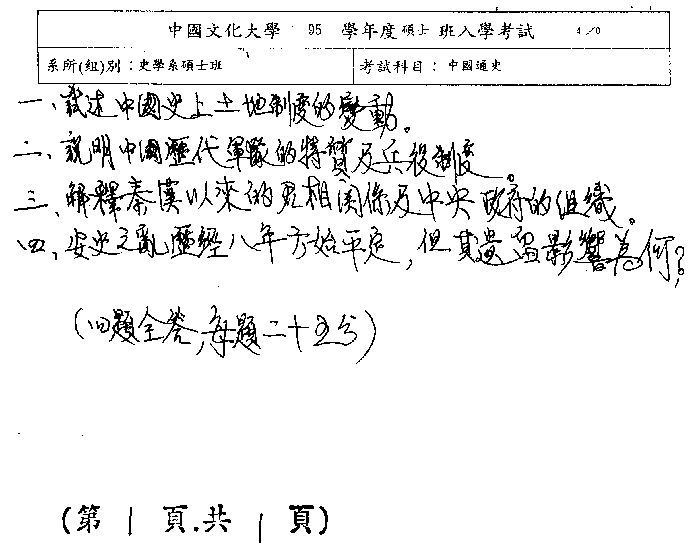 中國文化大學 95 學年度碩士班入學考試 4/0
系所(組)別：史學系碩士班 考試科目：中國通史
一、試述中國史上土地制度的變動。
二、說明中國歷代軍隊的特質及兵役制度。
三、解釋秦漢以來的君相關係及中央政府的組織。
四、安史之亂歷經八年方始平定，但其遺留影響為何？
(四題全答，每題二十五分)
(第 1 頁.共 1 頁)